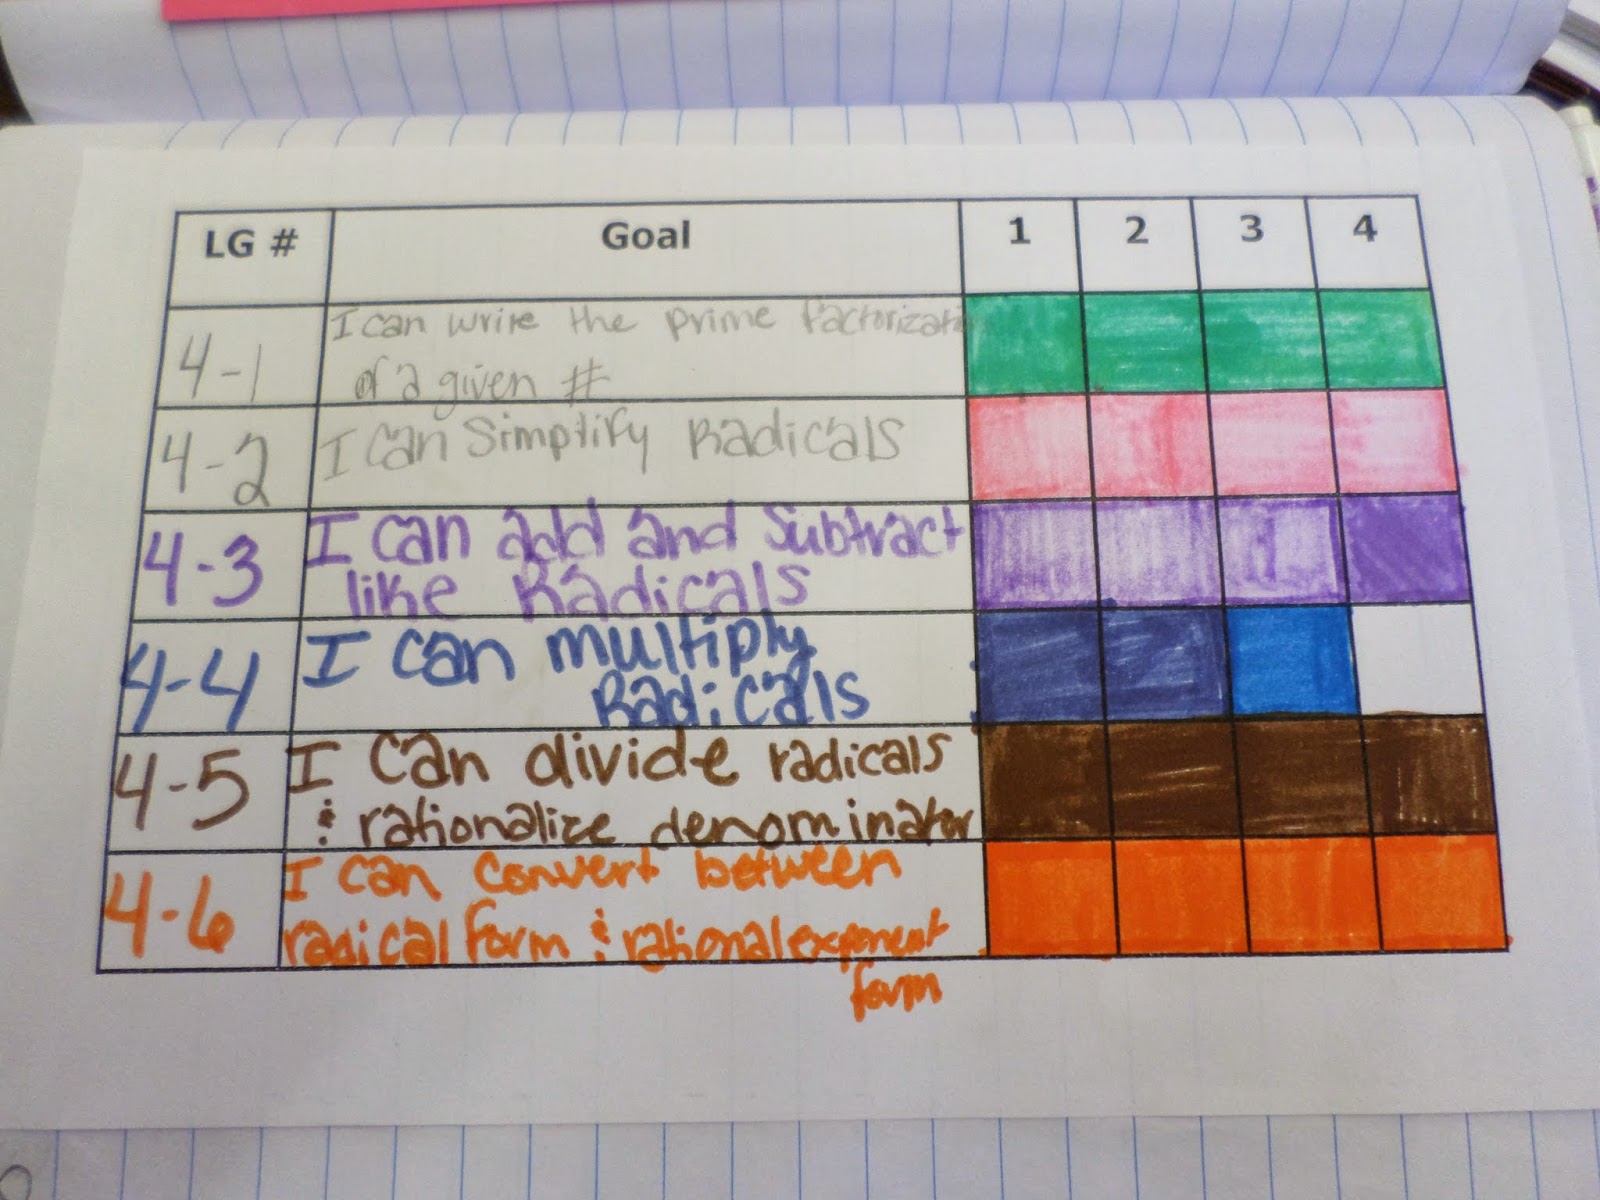 LG # Goal 1 2 3 4
4-1 I can write the prime factorization
of a given #
4-2 I can Simplify Radicals
4-3 I can add and Subtract
like Radicals
4-4 I can multiply
Radicals
4-5 I can divide radicals
& rationalize denominator
4-6 I can convert between
radical form & rational exponent
form